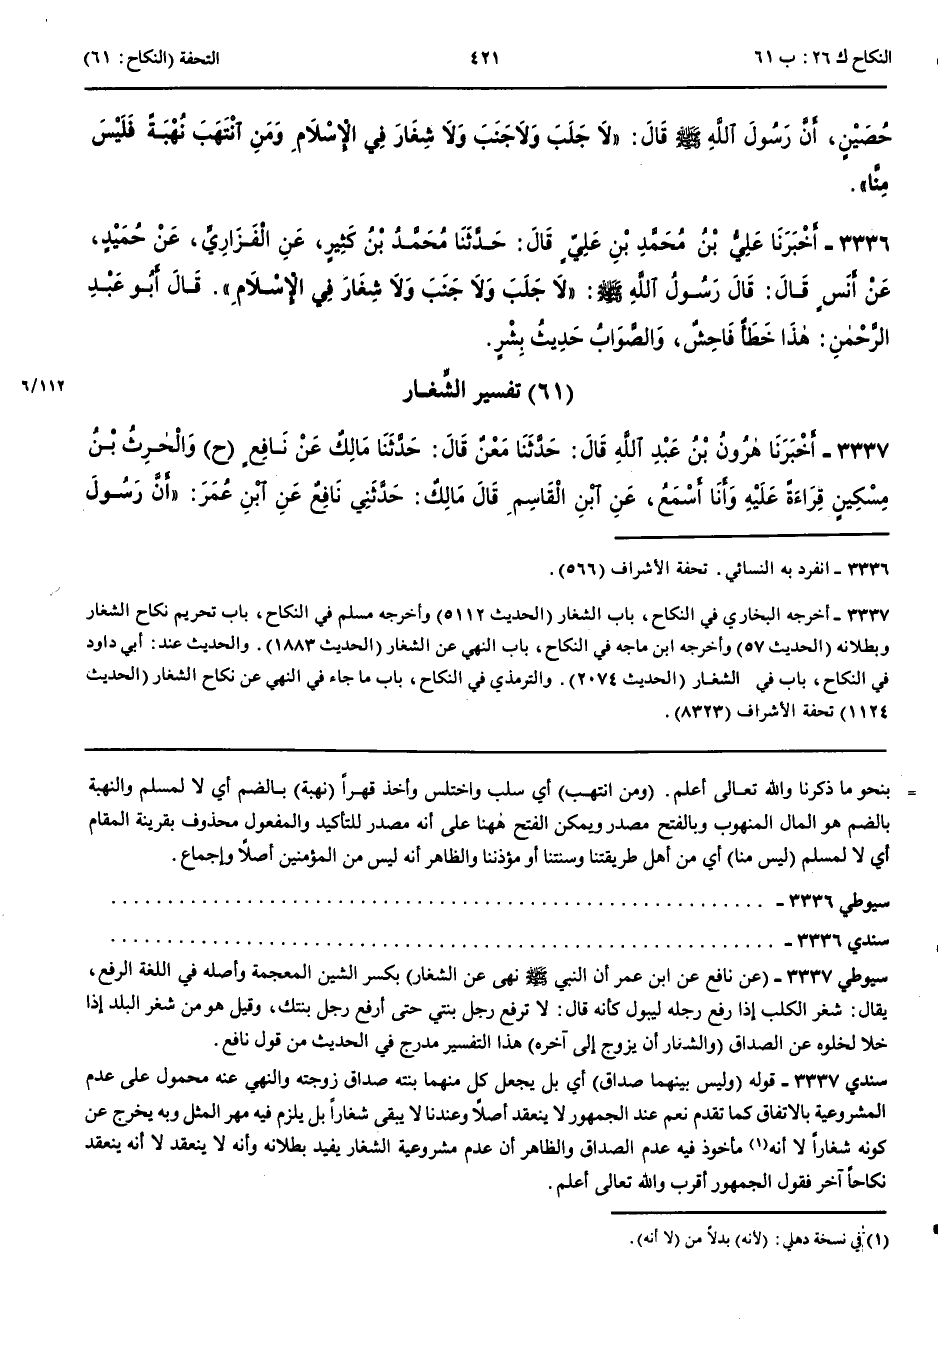 النكاح ك ٢٦: ب ٦١
٤٢١
التحفة (النكاح: ٦١)
حُصَيْنٍ، أَنَّ رَسُولَ ٱللَّهِ ﷺ قَالَ: «لَا جَلَبَ وَلَاجَنَبَ وَلَا شِغَارَ فِي الْإِسْلَامِ وَمَنِ ٱنْتَهَبَ نُهْبَةً فَلَيْسَ
مِنَّا».
٣٣٣٦ - أَخْبَرَنَا عَلِيُّ بْنُ مُحَمَّدِ بْنِ عَلِيٍّ قَالَ: حَدَّثَنَا مُحَمَّدُ بْنُ كَثِيرٍ، عَنِ الْفَزَارِيِّ، عَنْ حُمَيْدٍ،
عَنْ أَنَسٍ قَالَ: قَالَ رَسُولُ ٱللَّهِ ﷺ: «لَا جَلَبَ وَلَا جَنَبَ وَلَا شِغَارَ فِي الْإِسْلَامِ». قَالَ أَبُو عَبْدِ
الرَّحْمٰنِ: هٰذَا خَطَأٌ فَاحِشٌ، وَالصَّوَابُ حَدِيثُ بِشْرٍ.
(٦١) تفسير الشِّغار
٦/١١٢
٣٣٣٧ - أَخْبَرَنَا هٰرُونُ بْنُ عَبْدِ ٱللَّهِ قَالَ: حَدَّثَنَا مَعْنٌ قَالَ: حَدَّثَنَا مَالِكٌ عَنْ نَافِعٍ (ح) وَالْحٰرِثُ بْنُ
مِسْكِينٍ قِرَاءَةً عَلَيْهِ وَأَنَا أَسْمَعُ، عَنِ ٱبْنِ الْقَاسِمِ قَالَ مَالِكٌ: حَدَّثَنِي نَافِعٌ عَنِ ٱبْنِ عُمَرَ: «أَنَّ رَسُولَ
٣٣٣٦ - انفرد به النسائي. تحفة الأشراف (٥٦٦).
٣٣٣٧ - أخرجه البخاري في النكاح، باب الشغار (الحديث ٥١١٢) وأخرجه مسلم في النكاح، باب تحريم نكاح الشغار
وبطلانه (الحديث ٥٧) وأخرجه ابن ماجه في النكاح، باب النهي عن الشغار (الحديث ١٨٨٣). والحديث عند: أبي داود
في النكاح، باب في الشغار (الحديث ٢٠٧٤). والترمذي في النكاح، باب ما جاء في النهي عن نكاح الشغار (الحديث
١١٢٤) تحفة الأشراف (٨٣٢٣).
= بنحو ما ذكرنا والله تعالى أعلم. (ومن انتهب) أي سلب واختلس وأخذ قهراً (نهبة) بالضم أي لا لمسلم والنهبة
بالضم هو المال المنهوب وبالفتح مصدر ويمكن الفتح ههنا على أنه مصدر للتأكيد والمفعول محذوف بقرينة المقام
أي لا لمسلم (ليس منا) أي من أهل طريقتنا وسنتنا أو مؤذننا والظاهر أنه ليس من المؤمنين أصلاً وإجماع.
سيوطي ٣٣٣٦ - . . . . . . . . . . . . . . . . . . . . . . . . . . . . . .
سندي ٣٣٣٦ - . . . . . . . . . . . . . . . . . . . . . . . . . . . . . .
سيوطي ٣٣٣٧ - (عن نافع عن ابن عمر أن النبي ﷺ نهى عن الشغار) بكسر الشين المعجمة وأصله في اللغة الرفع،
يقال: شغر الكلب إذا رفع رجله ليبول كأنه قال: لا ترفع رجل بنتي حتى أرفع رجل بنتك، وقيل هو من شغر البلد إذا
خلا لخلوه عن الصداق (والشغار أن يزوج إلى آخره) هذا التفسير مدرج في الحديث من قول نافع.
سندي ٣٣٣٧ - قوله (وليس بينهما صداق) أي بل يجعل كل منهما بنته صداق زوجته والنهي عنه محمول على عدم
المشروعية بالاتفاق كما تقدم نعم عند الجمهور لا ينعقد أصلاً وعندنا لا يبقى شغاراً بل يلزم فيه مهر المثل وبه يخرج عن
كونه شغاراً لا أنه(١) مأخوذ فيه عدم الصداق والظاهر أن عدم مشروعية الشغار يفيد بطلانه وأنه لا ينعقد لا أنه ينعقد
نكاحاً آخر فقول الجمهور أقرب والله تعالى أعلم.
(١) في نسخة دهلي: (لأنه) بدلاً من (لا أنه).